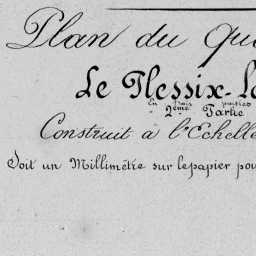 Plan du Qu
Le Plessix-L
En trois parties
2ème Partie
Construit à l'Echelle
Soit un Millimètre sur le papier pou